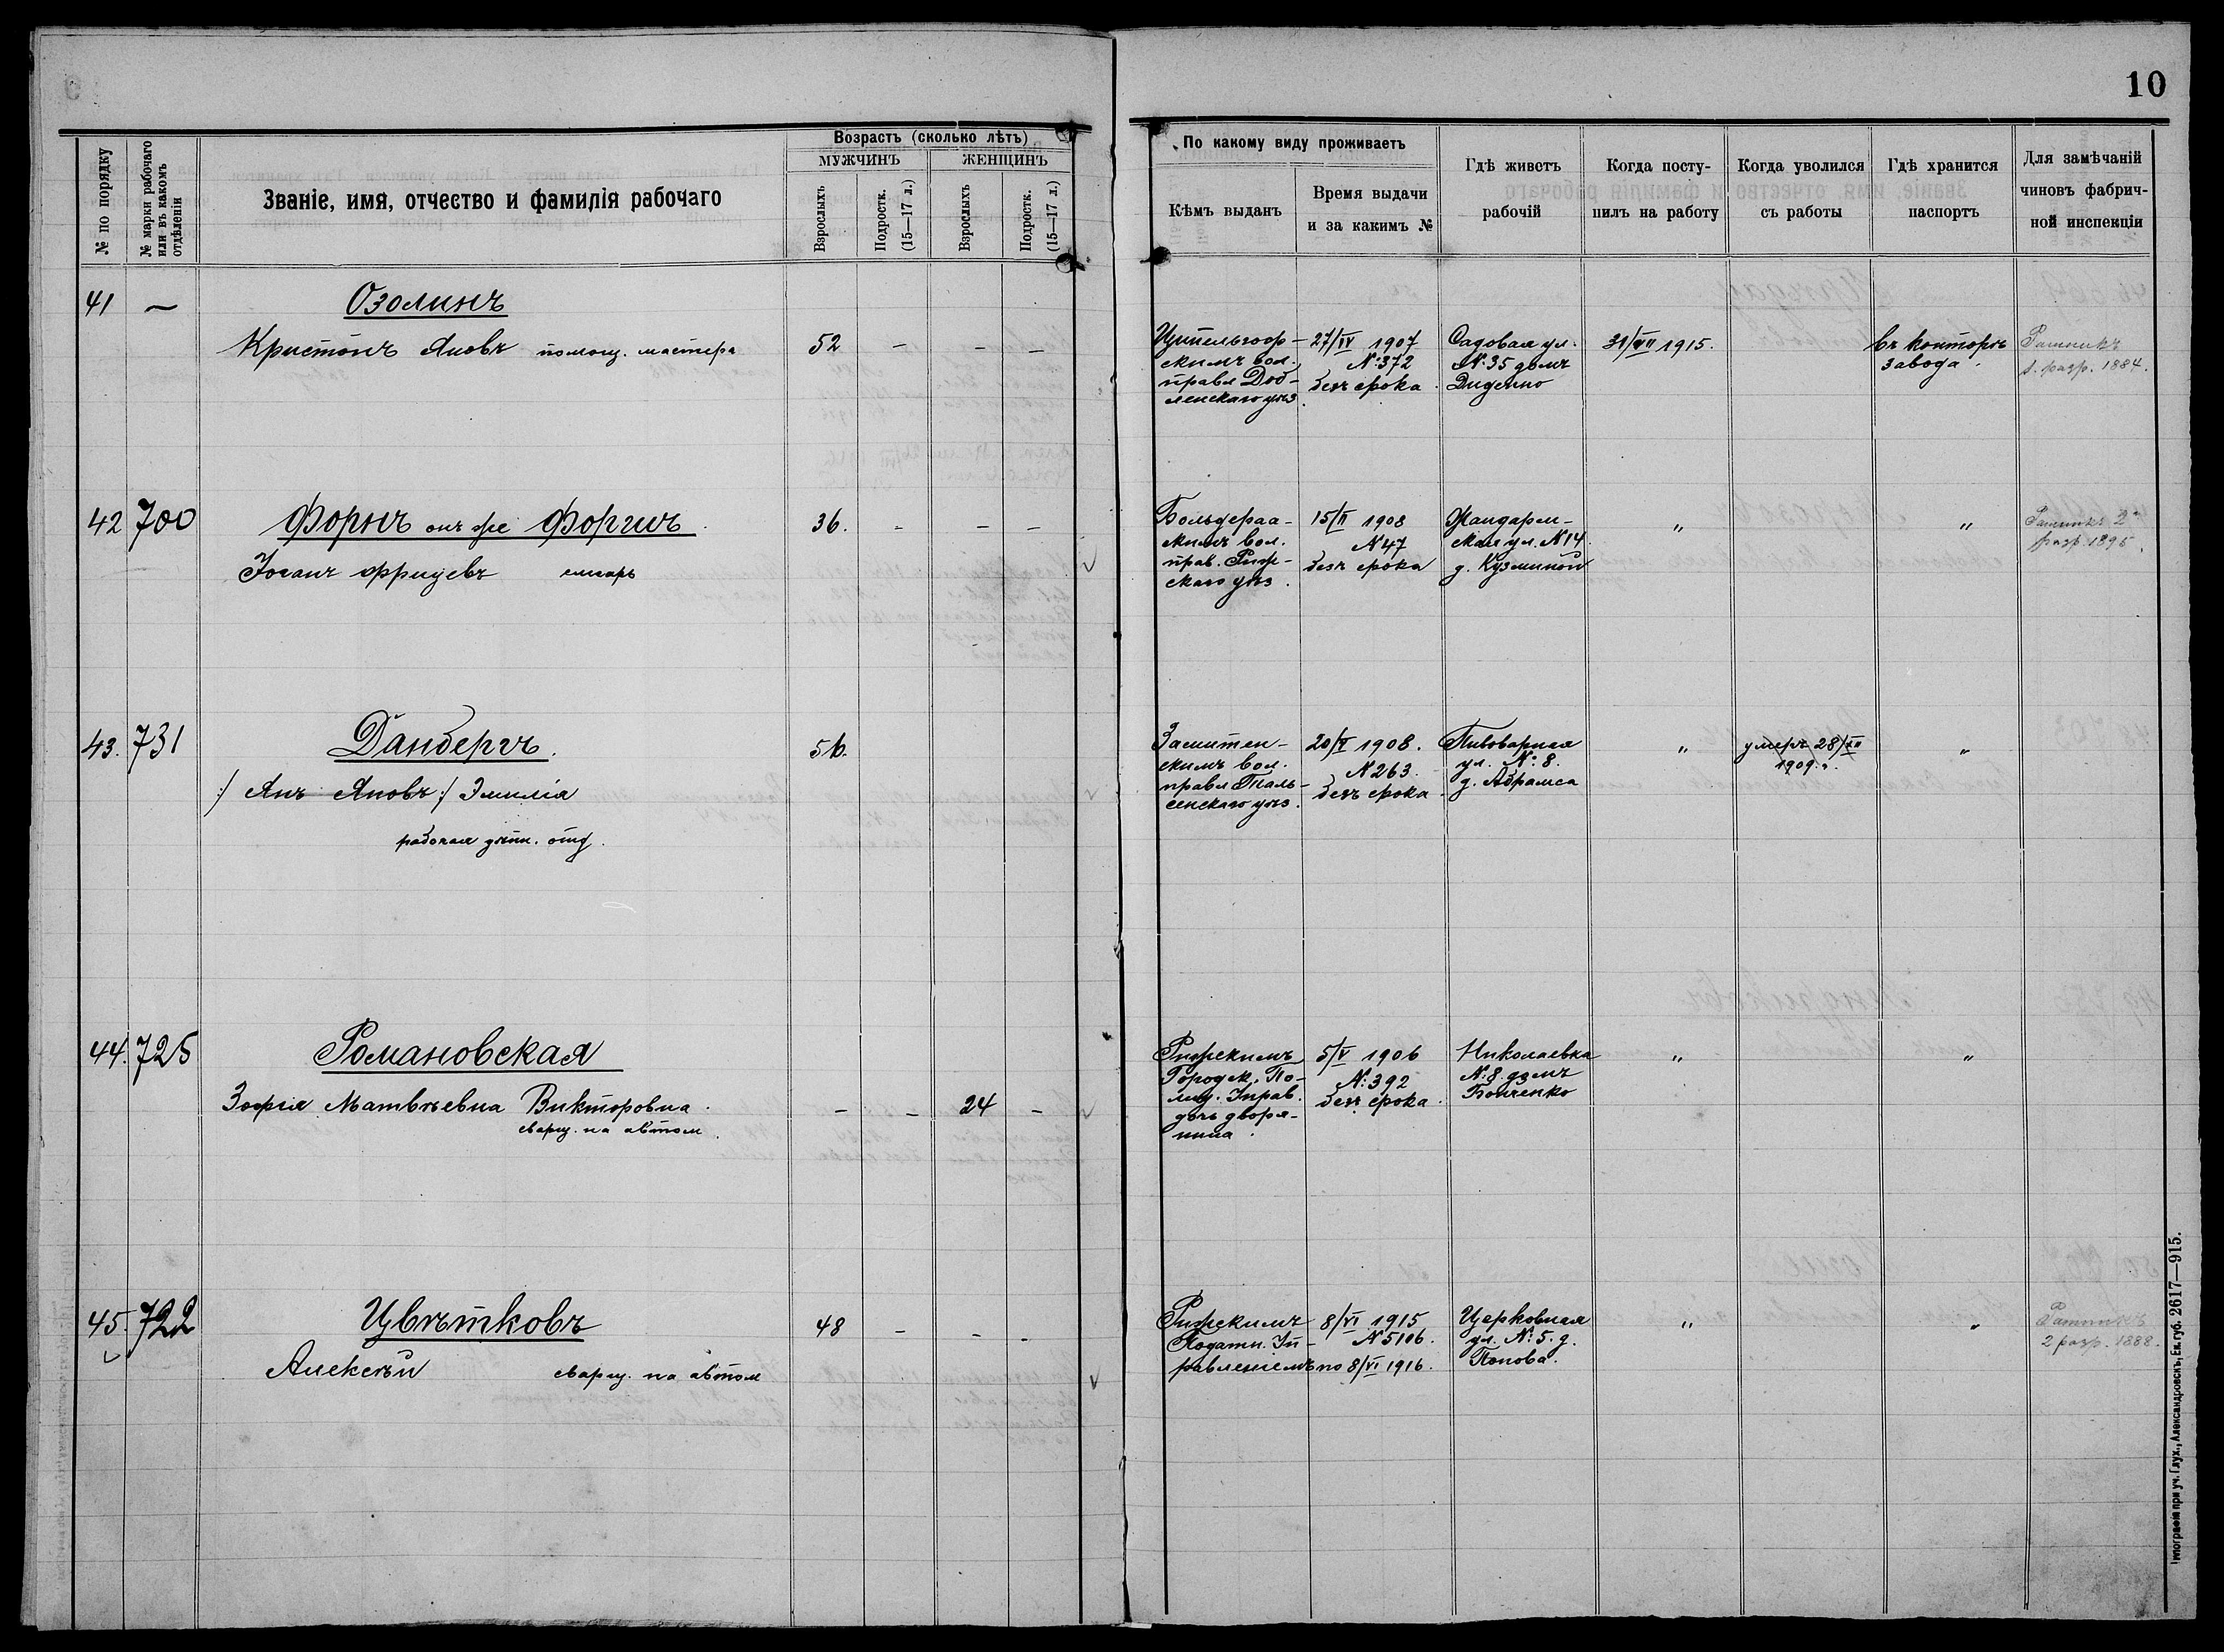 10
№ по порядку
№ марки рабочаго или въ какомъ отдѣленіи
Званіе, имя, отчество и фамилія рабочаго
Возрастъ (сколько лѣтъ)
МУЖЧИНЪ
ЖЕНЩИНЪ
Взрослыхъ
Подростк. (15—17 л.)
Взрослыхъ
Подростк. (15—17 л.)
По какому виду проживаетъ
Кѣмъ выданъ
Время выдачи и за какимъ №
Гдѣ живетъ рабочій
Когда посту-пилъ на работу
Когда уволился съ работы
Гдѣ хранится паспортъ
Для замѣчаній чиновъ фабрич-ной инспекціи
41 —
Озолинъ
Кристопъ Яновъ помощ. мастера
52 — — —
скимъ вол.
правл Доб-
ленскаго уѣз.
27/IV 1907
№ 372
безъ срока
Садовая ул.
№ 35 домъ
Диденко
31/VII 1915.
Въ конторѣ
завода.
Ратникъ
1. разр. 1884.
42 700
Форнъ онъ же
Іоганъ Фрицевъ слесарь
36. - — —
Больдераа-
скимъ вол.
прав. Риж-
скаго уѣз.
15/II 1908
№ 47
безъ срока
Жандарм-
ская ул. № 14.
д. Кузьминой
"
"
Ратникъ 2
разр 1895.
43. 731
Данбергъ.
:/ Янъ Яновъ :/ Эмилія
рабочая отд.
56.
скимъ вол.
правл Таль-
сенскаго уѣз.
20/V 1908.
№ 263.
безъ срока
Пивоварная
ул. № 8.
д. Абрамса
"
умеръ 28/XII
1909 г.
"
44. 725
Романовская
Зофія Матвѣевна Викторовна
сварщ. на автом.
— — 24 —
Рижскимъ
Городск. По-
лиц. Управ.
дочь дворя-
нина.
5/V 1906
№ 392
безъ срока
Николаевка
№ 8. домъ
Бойченко
"
"
45. 722
Цвѣтковъ
Алексѣй сварщ. на автом
48 — - -
Рижскимъ
Податн. Уп-
равленіемъ
8/VI 1915
№ 5106.
по 8/VI 1916.
Церковная
ул. № 5. д.
Попова.
"
"
Ратникъ
2 разр. 1888.
Типографія при уч. Глух., Александровскъ, Ек. губ. 2617—915.